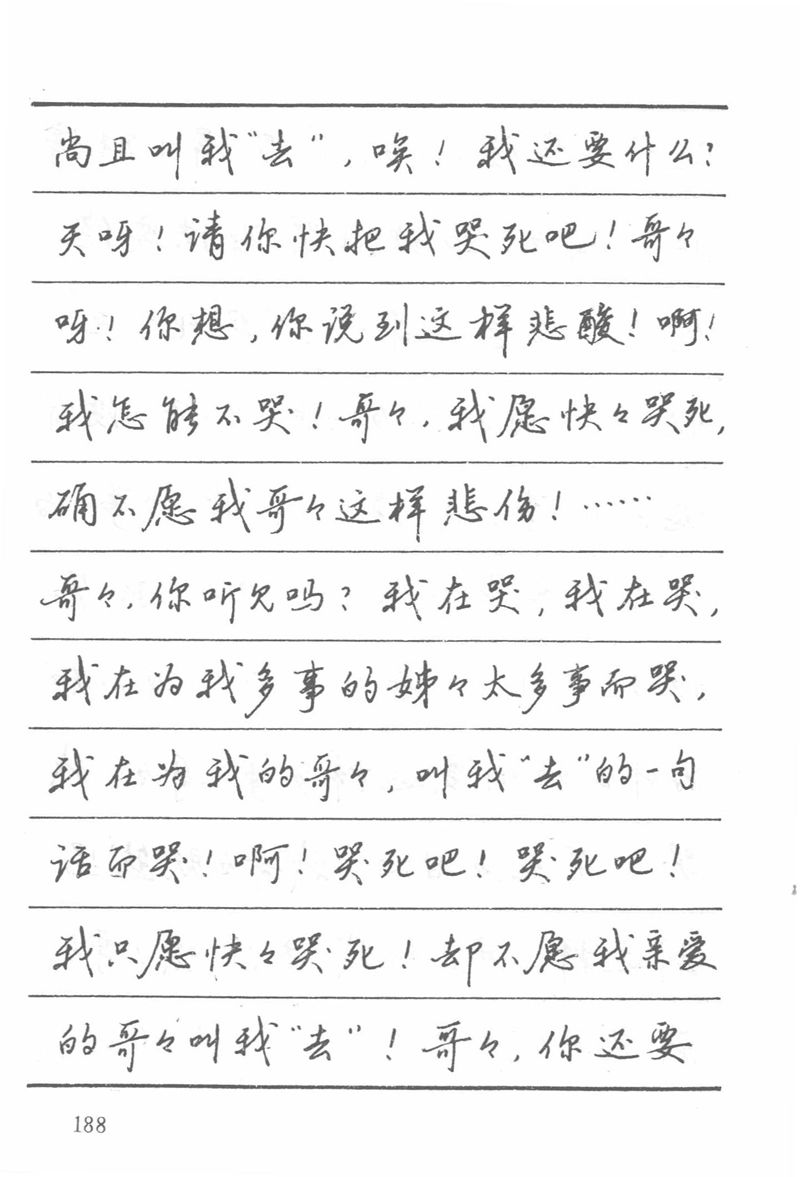 尚且叫我“去”，唉！我还要什么？
天呀！请你快把我哭死吧！哥々
呀！你想，你说到这样悲酸！啊！
我怎能不哭！哥々，我愿快々哭死，
确不愿我哥々这样悲伤！……
哥々，你听见吗？我在哭，我在哭，
我在为我多事的姊々太多事而哭，
我在为我的哥々，叫我“去”的一句
话而哭！啊！哭死吧！哭死吧！
我只愿快々哭死！却不愿我亲爱
的哥々叫我“去”！哥々，你还要
188